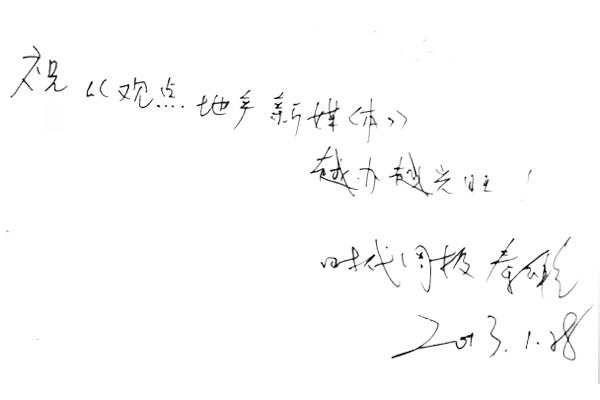 祝《观点地产新媒体》
越办越兴旺!
时代周报
2013.1.28